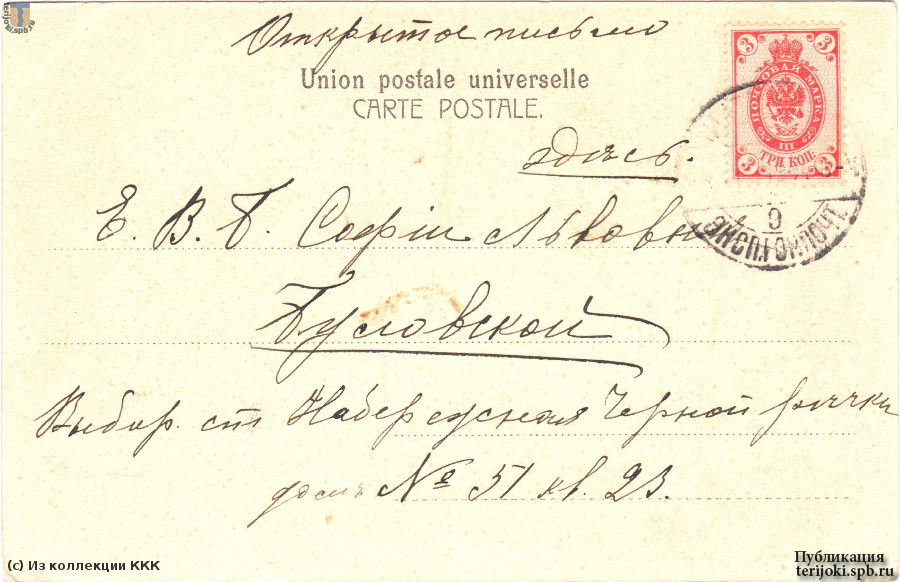 terijoki.spb.ru
Открытое письмо
Union postale universelle
CARTE POSTALE.
3 3
ПОЧТОВАЯ МАРКА
III
ТРИ КОП.
3 3
здѣсь.
9
ЭКСП. ГОР. ПОЧТ.
Е. В. Б. Софіи Львовнѣ
Бусловской
Выбор. ст Набережная Черной рѣчки
домъ № 51 кв. 23.
(c) Из коллекции ККК
Публикация
terijoki.spb.ru